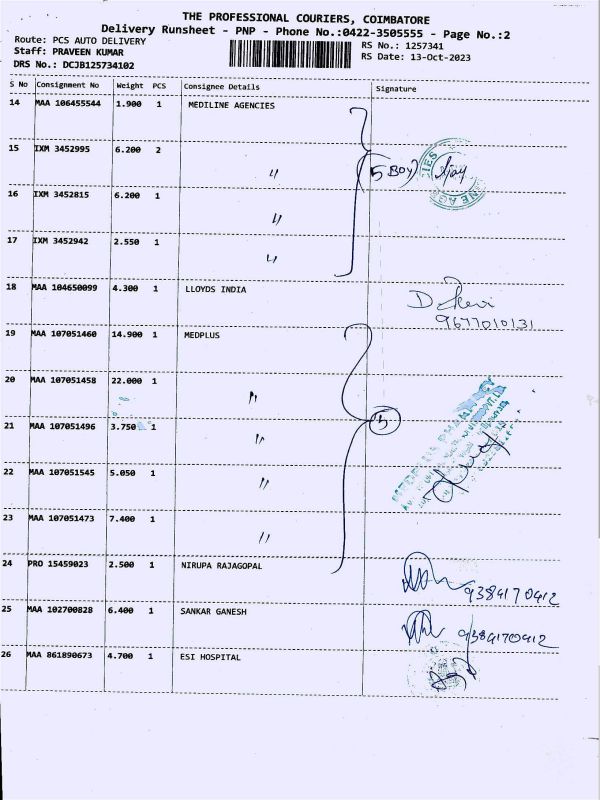 THE PROFESSIONAL COURIERS, COIMBATORE
Delivery Runsheet - PNP - Phone No.:0422-3505555 - Page No.:2
Route: PCS AUTO DELIVERY
RS No.: 1257341
Staff: PRAVEEN KUMAR
RS Date: 13-Oct-2023
DRS No.: DCJB125734102
S No Consignment No Weight PCS Consignee Details Signature
14 MAA 106455544 1.900 1 MEDILINE AGENCIES
15 IXM 3452995 6.200 2 〃
5 BOY
16 IXM 3452815 6.200 1 〃
17 IXM 3452942 2.550 1 〃
18 MAA 104650099 4.300 1 LLOYDS INDIA
9677010131
19 MAA 107051460 14.900 1 MEDPLUS
20 MAA 107051458 22.000 1 〃
21 MAA 107051496 3.750 1 〃 5
22 MAA 107051545 5.050 1 〃
23 MAA 107051473 7.400 1 〃
24 PRO 15459023 2.500 1 NIRUPA RAJAGOPAL 9384170412
25 MAA 102700828 6.400 1 SANKAR GANESH 9384170412
26 MAA 861890673 4.700 1 ESI HOSPITAL